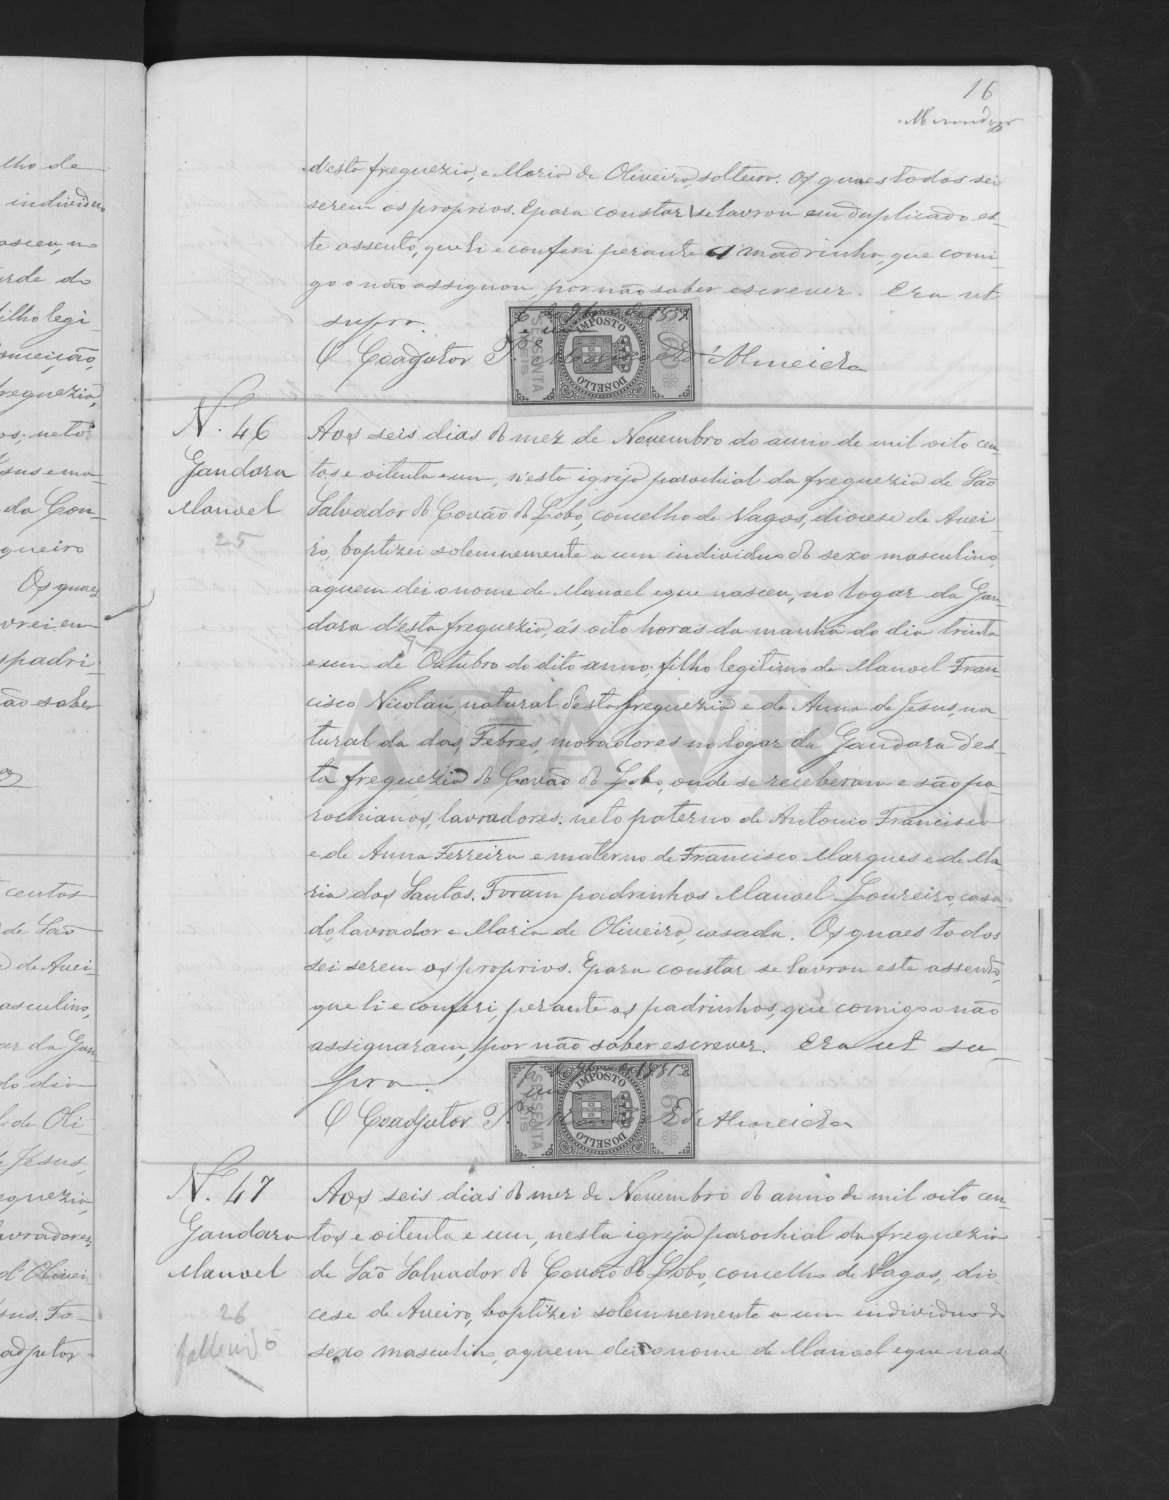 16
d'esta freguezia, e Maria de Oliveira, solteira. Os quaes todos sei
serem os proprios. E para constar se lavrou em duplicado es-
te assento, que li e conferi perante a madrinha, que comi-
go o não assignou, por não saber escrever. Era ut
supra.
O Coadjutor P.e d'Almeida
IMPOSTO DO SELLO
SESSENTA REIS
N. 46
Gandara
Manoel
25
Aos seis dias do mez de Novembro do anno de mil oito cen-
tos e oitenta e um, n'esta igreja parochial da freguezia de São
Salvador do Covão do Lobo, concelho de Vagos, diocese de Avei-
ro, baptizei solemnemente a um individuo do sexo masculino,
a quem dei o nome de Manoel e que nasceu, no logar da Gan-
dara d'esta freguezia, ás oito horas da manhã do dia trinta
e um de Outubro do dito anno, filho legitimo de Manoel Fran-
cisco Nicolau, natural d'esta freguezia e de Anna de Jesus, na-
tural da das Febres, moradores no logar da Gandara d'es-
ta freguezia do Covão do Lobo, onde se receberam e são pa-
rochianos, lavradores. neto paterno de Antonio Francisco
e de Anna Ferreira e materno de Francisco Marques e de Ma-
ria dos Santos. Foram padrinhos Manoel Loureiro, casa-
do, lavrador e Maria de Oliveira, casada. Os quaes todos
sei serem os proprios. E para constar se lavrou este assento,
que li e conferi, perante os padrinhos, que comigo o não
assignaram, por não saber escrever. Era ut su-
pra.
O Coadjutor P.e d'Almeida
IMPOSTO DO SELLO
SESSENTA REIS
N. 47
Gandara
Manoel
26
fallecido
Aos seis dias do mez de Novembro do anno de mil oito cen-
tos e oitenta e um, nesta igreja parochial da freguezia
de São Salvador do Covão do Lobo, concelho de Vagos, dio-
cese de Aveiro, baptizei solemnemente a um individuo do
sexo masculino, a quem dei o nome de Manoel e que nas